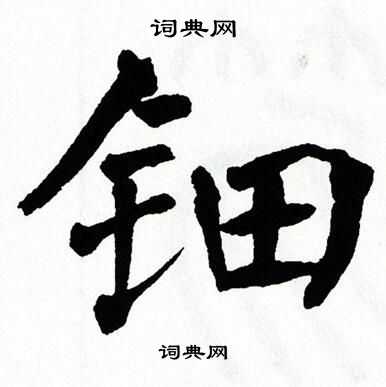 词典网
钿
词典网